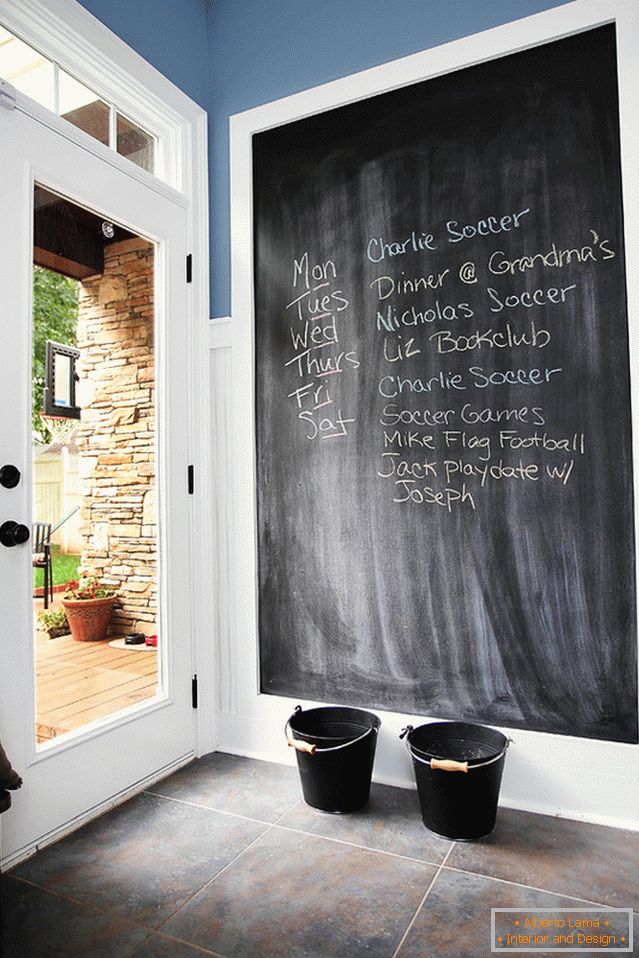 Mon Charlie Soccer
Tues Dinner @ Grandma's
Wed Nicholas Soccer
Thurs Liz Bookclub
Fri Charlie Soccer
Sat Soccer Games
Mike Flag Football
Jack playdate w/
Joseph
• Alberto Lama •
• Interior and Design •